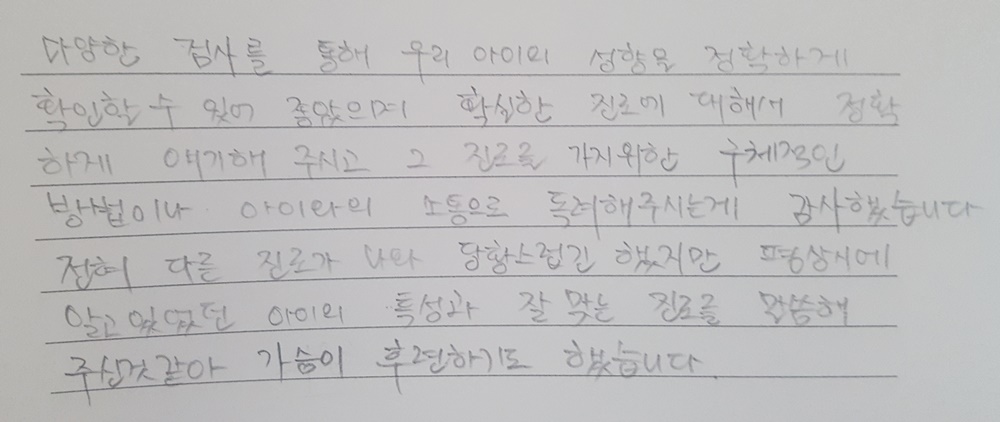 다양한 검사를 통해 우리 아이의 성향을 정확하게
확인할 수 있어 좋았으며 확실한 진로에 대해서 정확
하게 얘기해 주시고 그 진로를 가지위한 구체적인
방법이나 아이와의 소통으로 독려해주시는게 감사했습니다
전혀 다른 진로가 나와 당황스럽긴 했지만 평상시에
알고있었던 아이의 특성과 잘 맞는 진로를 말씀해
주신것같아 가슴이 후련하기도 했습니다.